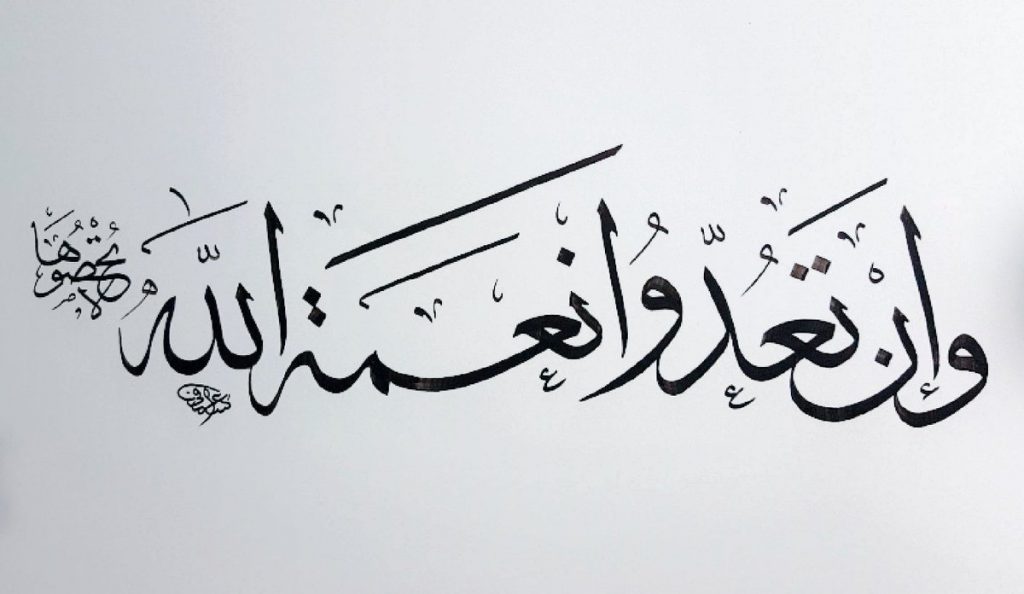 وَإِنْ تَعُدُّوا نِعْمَةَ اللَّهِ لَا تُحْصُوهَا